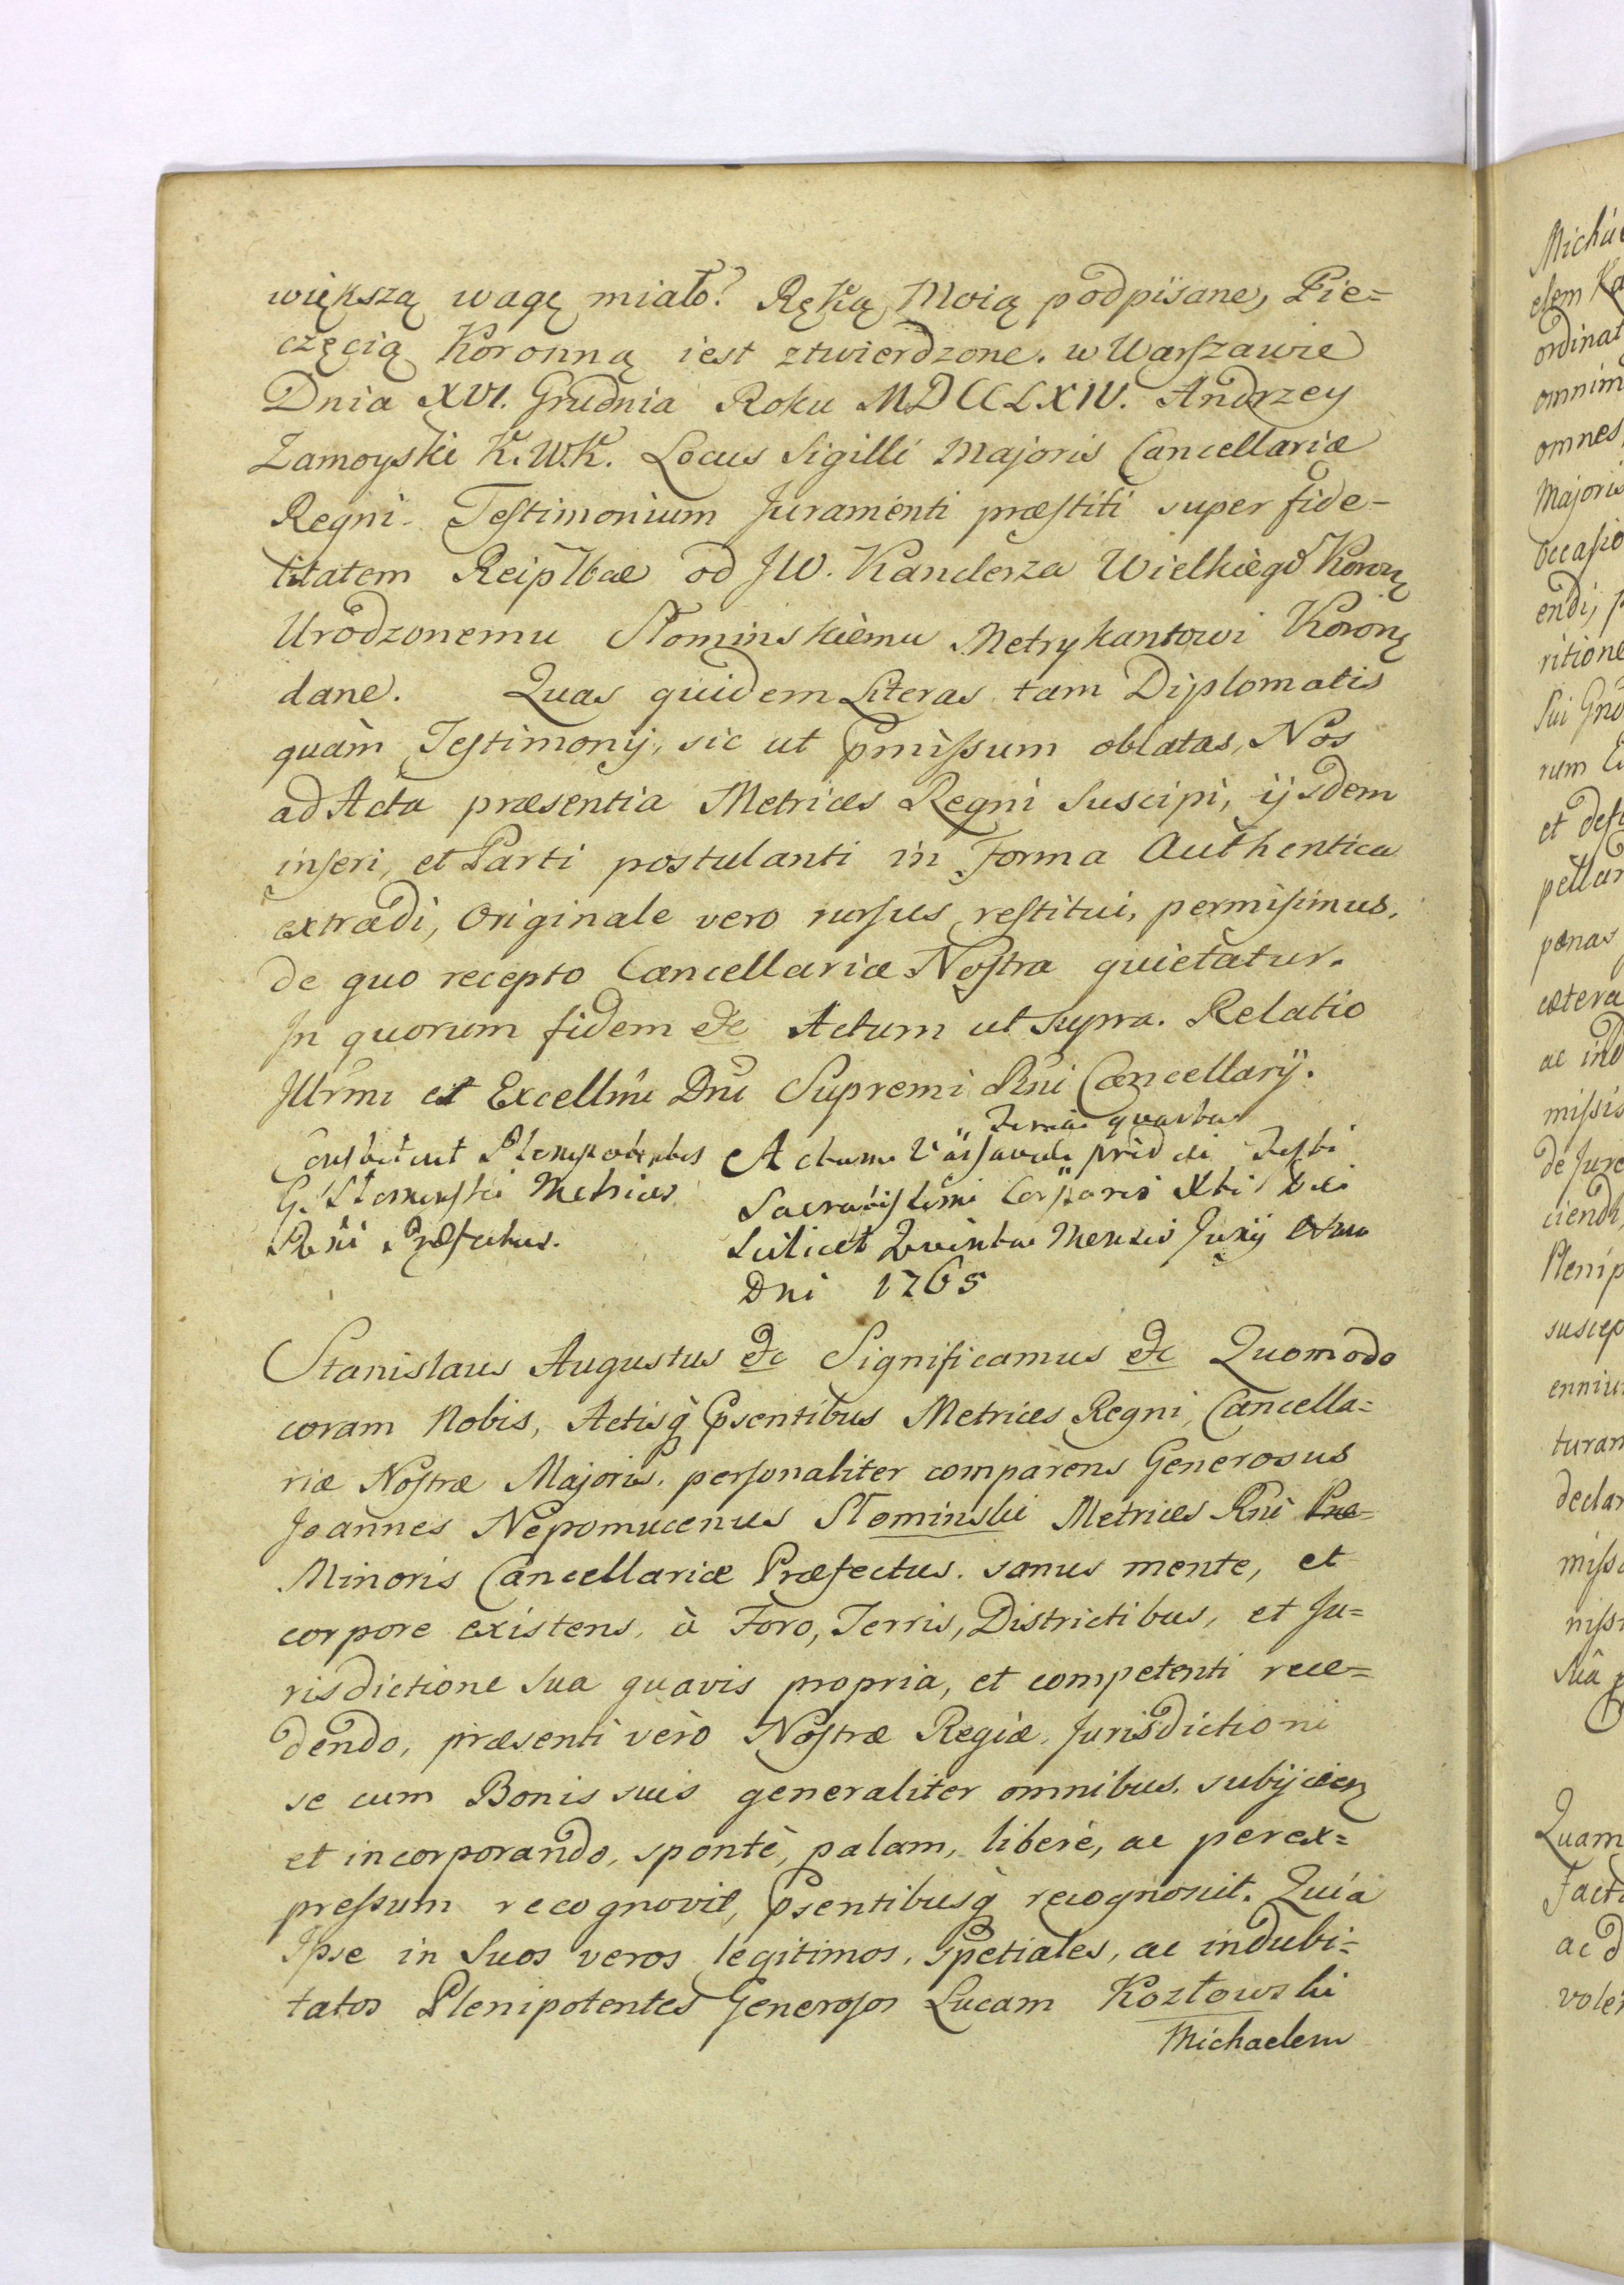 większą wagę miało? Ręką Moią podpisane, Pie=
częcią Koronną iest ztwierdzone. w Warszawie
Dnia XVI. Grudnia Roku MDCCLXIV. Andrzey
Zamoyski K.W.K. Locus Sigilli Majoris Cancellariæ
Regni. Testimonium Juramenti præstiti super fide-
litatem Reiplbcae od JW. Kanclerza Wielkiego Koronę
Urodzonemu Słominskiemu Metrykantowi Koronę
dane. Quas quidem Literas tam Diplomatis
quàm Testimonij, sic ut pmissum oblatas, Nos
ad Acta præsentia Metrices Regni Suscipi, ijsdem
inseri, et Parti postulanti in Forma Authentica
extradi, Originale vero rursus restitui, permisimus,
de quo recepto Cancellaria Nostra quietatur.
In quorum fidem etc Actum ut Supra. Relatio
Illrmi et Excellmi Dni Supremi Rni Cancellarij.
Constituit Plenipotentes
G. Słominski Metrices
Rni Præfectus.
Feria quarta
Actum Varsaviæ pridie Festi
Sacratissimi Corporis Xti Dei
Scilicet Quinta Mensis Junij Anno
Dni 1765
Stanislaus Augustus etc Significamus etc Quomodo
coram Nobis, Actisq psentibus Metrices Regni, Cancella=
riæ Nostræ Majoris, personaliter comparens Generosus
Joannes Nepomucenus Słominski Metrices Rni Præ=
Minoris Cancellariæ Præfectus. sanus mente, et
corpore existens, à Foro, Terris, Districtibus, et Ju=
risdictione sua quavis propria, et competenti rece=
dendo, præsenti verò Nostræ Regiæ, Jurisdictioni
se cum Bonis suis generaliter omnibus, subijcien
et incorporando, sponte, palam, liberè, ac per ex=
pressum recognovit, psentibusq recognoscit. Quia
Ipse in Suos veros legitimos, Spetiales, ac indubi=
tatos Plenipotentes Generosos Lucam Kozłowski
Michaelem